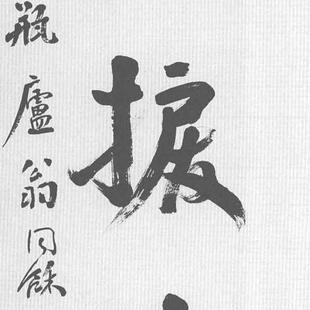 捩
瓶廬翁同龢